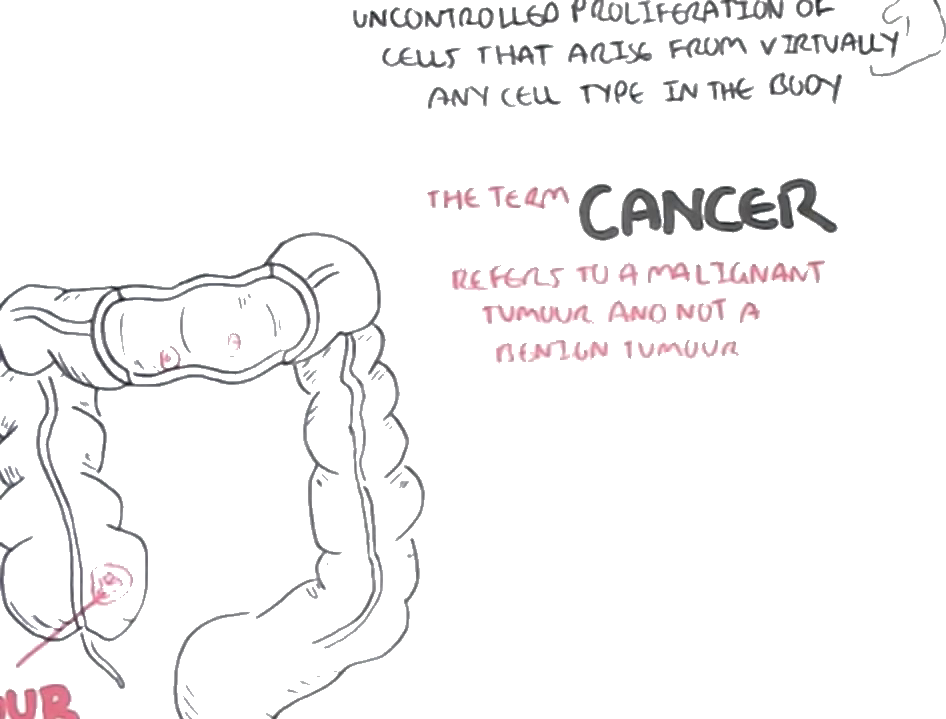 UNCONTROLLED PROLIFERATION OF
CELLS THAT ARISE FROM VIRTUALLY
ANY CELL TYPE IN THE BODY
THE TERM CANCER
REFERS TO A MALIGNANT
TUMOUR AND NOT A
BENIGN TUMOUR